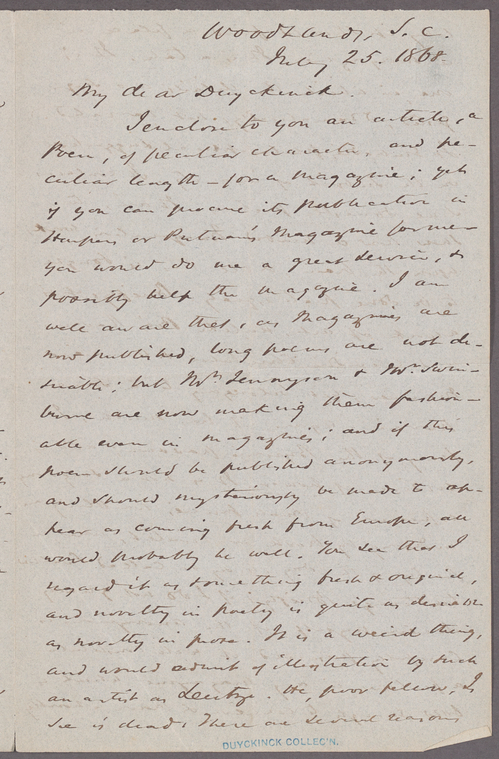 Woodlands, S. C.
July 25. 1868.
My dear Duyckinck.
I enclose to you an article, a
Poem, of peculiar character, and pe-
culiar length – for a magazine; yet
if you can procure its publication in
Harpers or Putnam's Magazine for me –
you would do me a great service, &
possibly help the magazine. I am
well aware that, as Magazines are
now published, long poems are not de-
sirable; but Mr. Tennyson & Mr. Swin-
burne are now making them fashion-
able even in magazines; and if this
poem should be published anonymously,
and should mysteriously be made to ap-
pear as coming fresh from Europe, all
would probably be well. You see that I
regard it as something fresh & original,
and novelty in poetry is quite as desirable
as novelty in prose. It is a weird thing,
and would admit of illustration by such
an artist as Leutze. He, poor fellow, I
see is dead. There are several reasons
DUYCKINCK COLLEC'N.